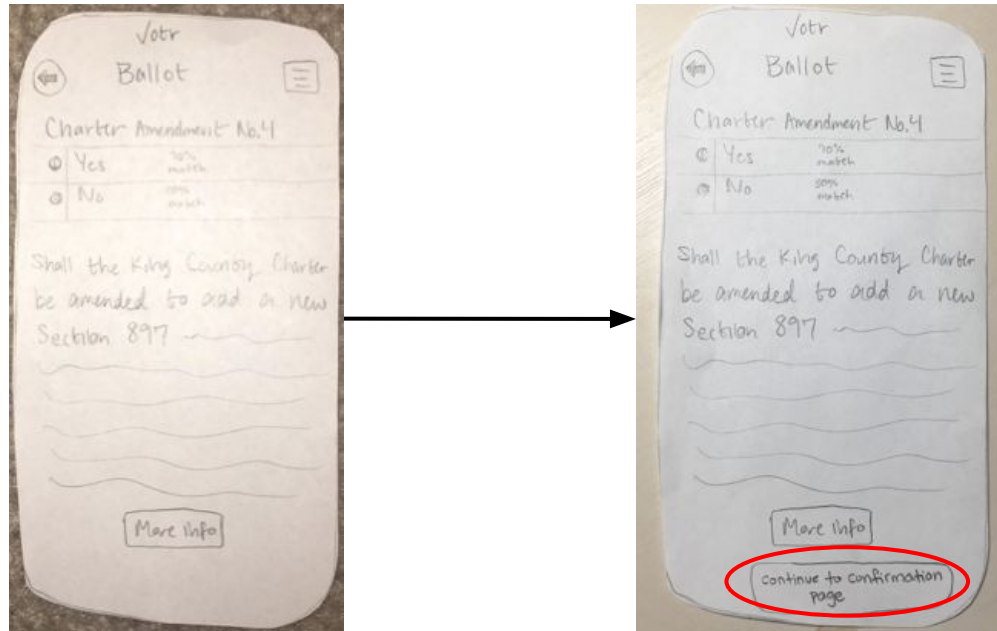 Votr
Ballot
Charter Amendment No.4
Yes 70% match
No 50% match
Shall the King County Charter
be amended to add a new
Section 897
More info
Votr
Ballot
Charter Amendment No.4
Yes 70% match
No 50% match
Shall the King County Charter
be amended to add a new
Section 897
More info
Continue to confirmation
page